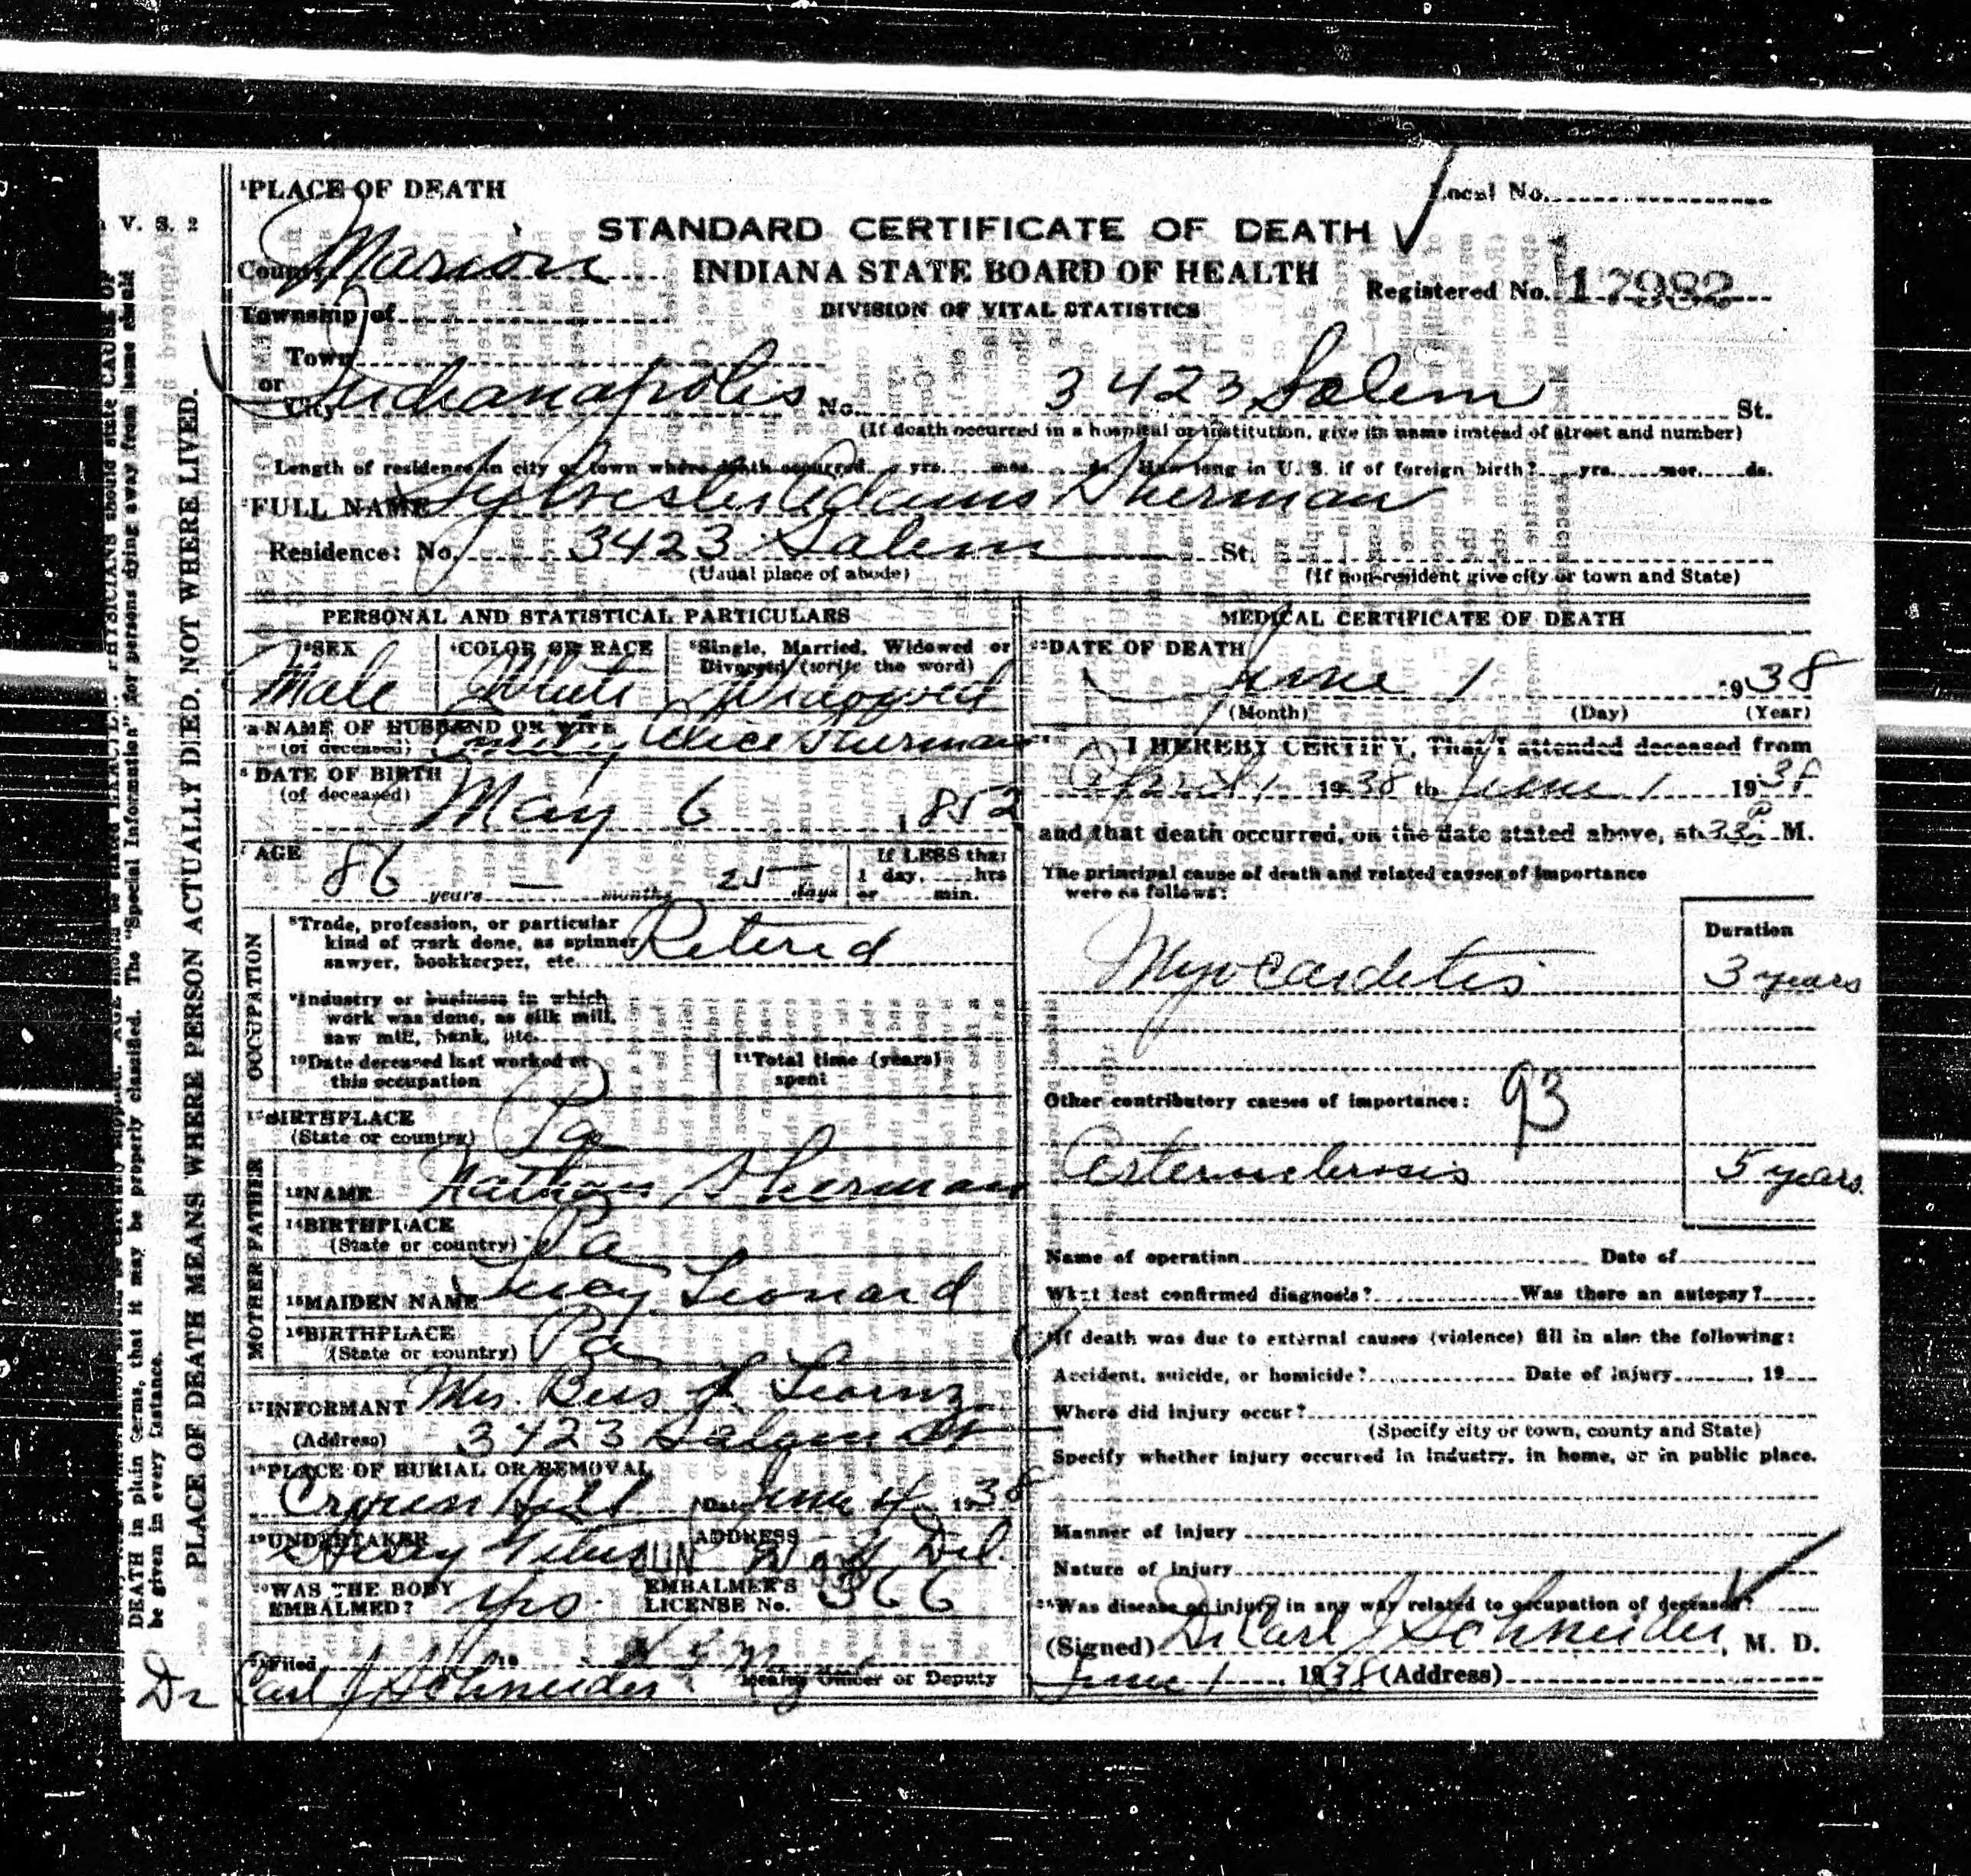 ¹PLACE OF DEATH
Local No.
V. S. 2
STANDARD CERTIFICATE OF DEATH
County Marion
INDIANA STATE BOARD OF HEALTH
Registered No. 17982
Township of
DIVISION OF VITAL STATISTICS
Town
or
City Indianapolis No. 3423 Salem St.
(If death occurred in a hospital or institution, give its name instead of street and number)
Length of residence in city or town where death occurred yrs. mos. ds. How long in U. S. if of foreign birth? yrs. mos. ds.
²FULL NAME Sylvester Adams Sherman
Residence: No. 3423 Salem St.
(Usual place of abode) (If non-resident give city or town and State)
PERSONAL AND STATISTICAL PARTICULARS
³SEX ⁴COLOR OR RACE ⁵Single, Married, Widowed or
Divorced (write the word)
Male White Widowed
NAME OF HUSBAND OR WIFE
(of deceased) Emily Alice Sherman
⁶DATE OF BIRTH
(of deceased) May 6 1852
⁷AGE If LESS than
86 years — months 25 days 1 day, hrs
or min.
OCCUPATION
⁸Trade, profession, or particular
kind of work done, as spinner Retired
sawyer, bookkeeper, etc.
⁹Industry or business in which
work was done, as silk mill,
saw mill, bank, etc.
¹⁰Date deceased last worked at ¹¹Total time (years)
this occupation spent
¹²BIRTHPLACE
(State or country) Pa
FATHER
¹³NAME Nathan Sherman
¹⁴BIRTHPLACE
(State or country) Pa
MOTHER
¹⁵MAIDEN NAME Lucy Leonard
¹⁶BIRTHPLACE
(State or country) Pa
¹⁷INFORMANT Mrs.
(Address) 3423 Salem St
¹⁸PLACE OF BURIAL OR REMOVAL
Crown Hill Date June 4 1938
¹⁹UNDERTAKER ADDRESS
²⁰WAS THE BODY EMBALMER'S
EMBALMED? Yes. LICENSE No. 366
Filed 19
Health Officer or Deputy
Dr Carl J Schneider
MEDICAL CERTIFICATE OF DEATH
DATE OF DEATH
June 1 1938
(Month) (Day) (Year)
I HEREBY CERTIFY, That I attended deceased from
April 1 1938 to June 1 1938
and that death occurred, on the date stated above, at P M.
The principal cause of death and related causes of importance
were as follows:
Duration
Myocarditis 3 years
Other contributory causes of importance: 93
Arteriosclerosis 5 years.
Name of operation Date of
What test confirmed diagnosis? Was there an autopsy?
If death was due to external causes (violence) fill in also the following:
Accident, suicide, or homicide? Date of injury , 19
Where did injury occur?
(Specify city or town, county and State)
Specify whether injury occurred in industry, in home, or in public place.
Manner of injury
Nature of injury
Was disease or injury in any way related to occupation of deceased?
(Signed) Dr Carl J Schneider, M. D.
June 1, 1938 (Address)
PLACE OF DEATH MEANS WHERE PERSON ACTUALLY DIED, NOT WHERE LIVED.
PHYSICIANS should state CAUSE OF
DEATH in plain terms, that it may be properly classified. The "Special Information" for persons dying away from home should
be given in every instance.